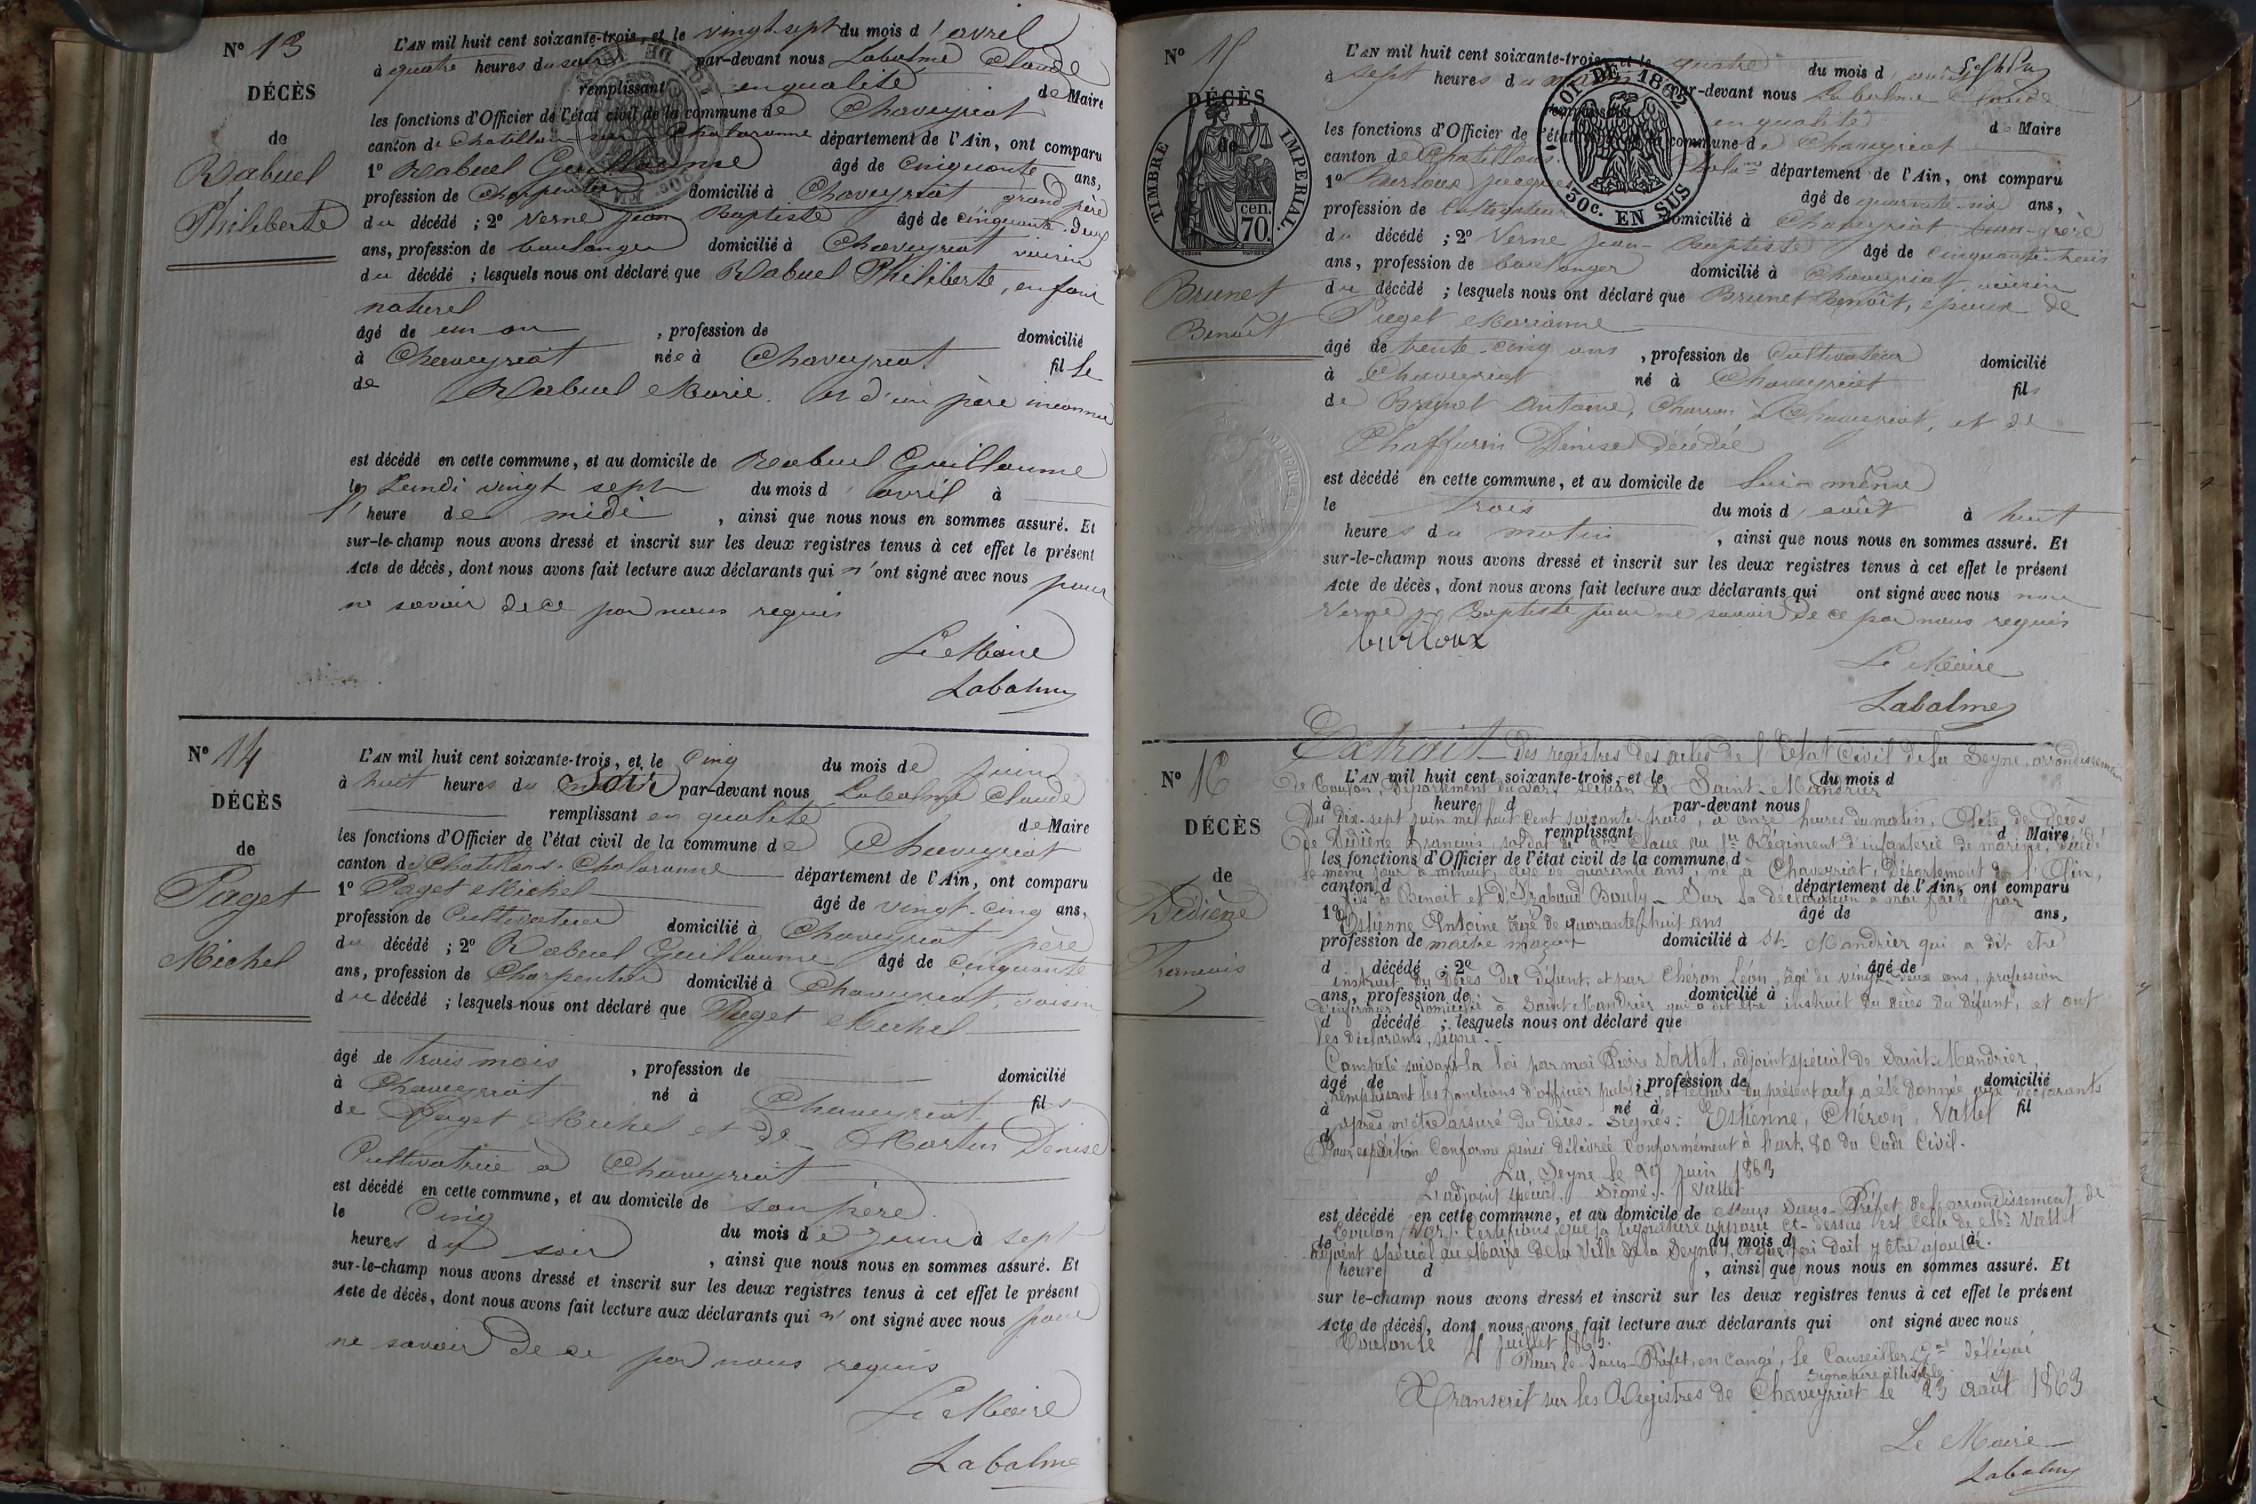 N° 13
DÉCÈS
de
Rabuel
Philiberte
L'AN mil huit cent soixante-trois, et le vingt-sept du mois d'avril
à quatre heures du soir par-devant nous Labalme Claude
remplissant en qualité de Maire
les fonctions d'Officier de l'état civil de la commune de Chaveyriat
canton de Chatillon sur Chalaronne département de l'Ain, ont comparu
1° Rabuel Guillaume âgé de cinquante ans,
profession de Charpentier domicilié à Chaveyriat grand père
du décédé ; 2° Verne Jean Baptiste âgé de cinquante-deux
ans, profession de boulanger domicilié à Chaveyriat voisin
du décédé ; lesquels nous ont déclaré que Rabuel Philiberte, enfant
naturel
âgé de un an , profession de domicilié
à Chaveyriat née à Chaveyriat fille
de Rabuel Marie. et d'un père inconnu
est décédé en cette commune, et au domicile de Rabuel Guillaume
le Lundi vingt sept du mois d'avril à
l'heure de midi , ainsi que nous nous en sommes assuré. Et
sur-le-champ nous avons dressé et inscrit sur les deux registres tenus à cet effet le présent
Acte de décès, dont nous avons fait lecture aux déclarants qui n'ont signé avec nous pour
ne savoir de ce par nous requis
Le Maire
Labalme
N° 14
DÉCÈS
de
Paget
Michel
L'AN mil huit cent soixante-trois, et le cinq du mois de juin
à huit heures du soir par-devant nous Labalme Claude
remplissant en qualité de Maire
les fonctions d'Officier de l'état civil de la commune de Chaveyriat
canton de Chatillon s. Chalaronne département de l'Ain, ont comparu
1° Paget Michel âgé de vingt-cinq ans,
profession de Cultivateur domicilié à Chaveyriat père
du décédé ; 2° Rabuel Guillaume âgé de cinquante
ans, profession de Charpentier domicilié à Chaveyriat, voisin
du décédé ; lesquels nous ont déclaré que Paget Michel
âgé de trois mois , profession de domicilié
à Chaveyriat né à Chaveyriat fils
de Paget Michel et de Martin Denise
Cultivatrice à Chaveyriat
est décédé en cette commune, et au domicile de son père
le cinq du mois de juin à sept
heures du soir , ainsi que nous nous en sommes assuré. Et
sur-le-champ nous avons dressé et inscrit sur les deux registres tenus à cet effet le présent
Acte de décès, dont nous avons fait lecture aux déclarants qui n'ont signé avec nous pour
ne savoir de ce par nous requis
Le Maire
Labalme
N° 15
DÉCÈS
de
TIMBRE IMPERIAL.
cen. 70.
Brunet
Benoit
LOI DE 1862
50c. EN SUS
L'AN mil huit cent soixante-trois et le quatre du mois d'août
à sept heures du par-devant nous Labalme Claude
remplissant en qualité de Maire
les fonctions d'Officier de l'état commune de Chaveyriat
canton de Chatillon s. département de l'Ain, ont comparu
1° Jacques âgé de quarante-six ans,
profession de Cultivateur domicilié à Chaveyriat beau-frère
du décédé ; 2° Verne Jean-Baptiste âgé de cinquante-trois
ans, profession de boulanger domicilié à Chaveyriat, voisin
du décédé ; lesquels nous ont déclaré que Brunet Benoît, époux de
Paget Marianne
âgé de trente-cinq ans , profession de Cultivateur domicilié
à Chaveyriat né à Chaveyriat fils
de Brunet Antoine, Charron à Chaveyriat, et de
Chaffurin Denise décédée
est décédé en cette commune, et au domicile de lui-même
le trois du mois d'août à huit
heures du matin , ainsi que nous nous en sommes assuré. Et
sur-le-champ nous avons dressé et inscrit sur les deux registres tenus à cet effet le présent
Acte de décès, dont nous avons fait lecture aux déclarants qui ont signé avec nous non
Verne Jn Baptiste pour ne savoir de ce par nous requis
Le Maire
Labalme
N° 16
DÉCÈS
de
Didiène
Francois
Extrait des registres des actes de l'Etat Civil de la Seyne, arrondissement
L'AN mil huit cent soixante-trois, et le du mois d
de Toulon, département du Var, section de Saint-Mandrier
à heure d par-devant nous
Du dix-sept juin mil huit cent soixante-trois, à onze heures du matin, Acte de décès
remplissant d Maire
De Didiène Francois, soldat de 2me Classe au 1er Régiment d'infanterie de marine, décédé
les fonctions d'Officier de l'état civil de la commune d
le même jour à minuit, âgé de quarante ans, né à Chaveyriat, Département de l'Ain,
canton d département de l'Ain, ont comparu
fils de Benoit et d' Bouly - Sur la déclaration à moi faite par
1° âgé de ans,
Estienne Antoine âgé de quarante huit ans
profession de maitre maçon domicilié à St Mandrier qui a dit etre
d décédé ; 2° âgé de
instruit du décès du défunt, et par Chéron Léon, âgé de vingt-deux ans, profession
ans, profession de domicilié à
d'infirmier domicilié à Saint Mandrier qui a dit être instruit du décès du défunt, et ont
d décédé ; lesquels nous ont déclaré que
les déclarants, signé.
Constaté suivant la loi par moi Pierre Vattet, adjoint spécial de Saint-Mandrier
âgé de , profession de domicilié
remplissant les fonctions d'officier public, et lecture du présent acte a été donnée aux déclarants
à né à fil
après m'être assuré du décès. Signés : Estienne, Chéron, Vattet
de
Pour expédition Conforme ainsi délivrée conformément à l'art. 80 du Code Civil.
La Seyne le 27 juin 1863
L'adjoint spécial. Signé : Vattet
est décédé en cette commune, et au domicile de
Nous Sous-Préfet de l'arrondissement de
Toulon (Var) Certifions que la signature apposée ci-dessus est celle de Mr Vattet
le du mois d à
adjoint spécial au Maire de la Ville de la Seyne, et que foi doit y être ajoutée.
heure d , ainsi que nous nous en sommes assuré. Et
sur le-champ nous avons dressé et inscrit sur les deux registres tenus à cet effet le présent
Acte de décès, dont nous avons fait lecture aux déclarants qui ont signé avec nous
Toulon le 4 juillet 1863.
Pour le Sous-Préfet, en congé, le Conseiller Gal délégué
Signature illisible
Transcrit sur les Registres de Chaveyriat le 23 août 1863
Le Maire
Labalme